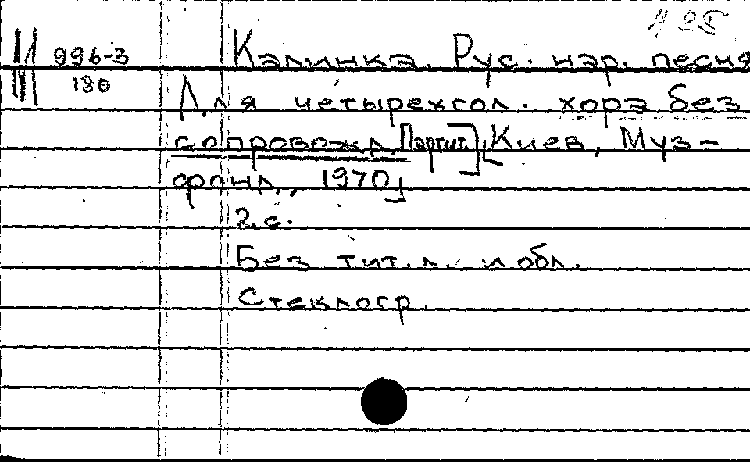 Калинка. Рус. нар. песня
М 996-3
180
Для четырехгол. хора без
сопровожд. [Партит.] [Киев, Муз-
фонд., 1970]
2 с.
Без тит. л. и обл.
Стеклогр.